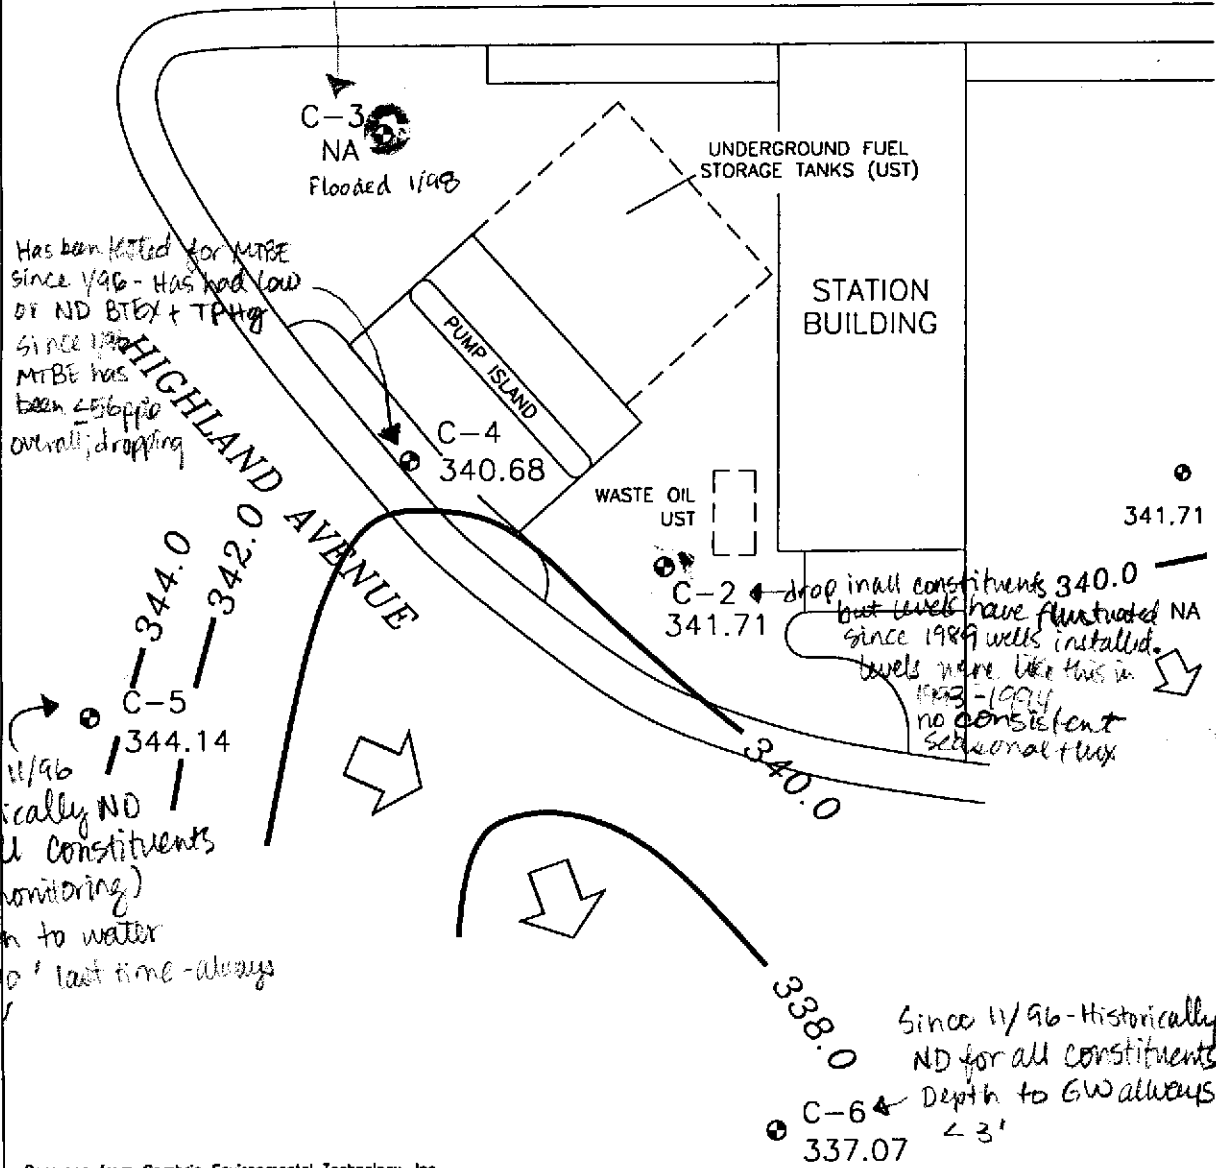 C-3
NA
Flooded 1/98
UNDERGROUND FUEL
STORAGE TANKS (UST)
STATION
BUILDING
Has been tested for MTBE
since 1/96 - Has had low
or ND BTEX + TPHg
since 1/96
MTBE has
been ≤56ppb
overall; dropping
HIGHLAND AVENUE
PUMP ISLAND
C-4
340.68
WASTE OIL
UST
341.71
340.0
NA
C-2
341.71
drop in all constituents
but levels have fluctuated
since 1989 wells installed.
levels were like this in
1993-1994
no consistent
seasonal flux
344.0
342.0
C-5
344.14
11/96
ically ND
ll constituents
monitoring)
h to water
0' last time - always
340.0
338.0
Since 11/96 - Historically
ND for all constituents
Depth to GW always
< 3'
C-6
337.07